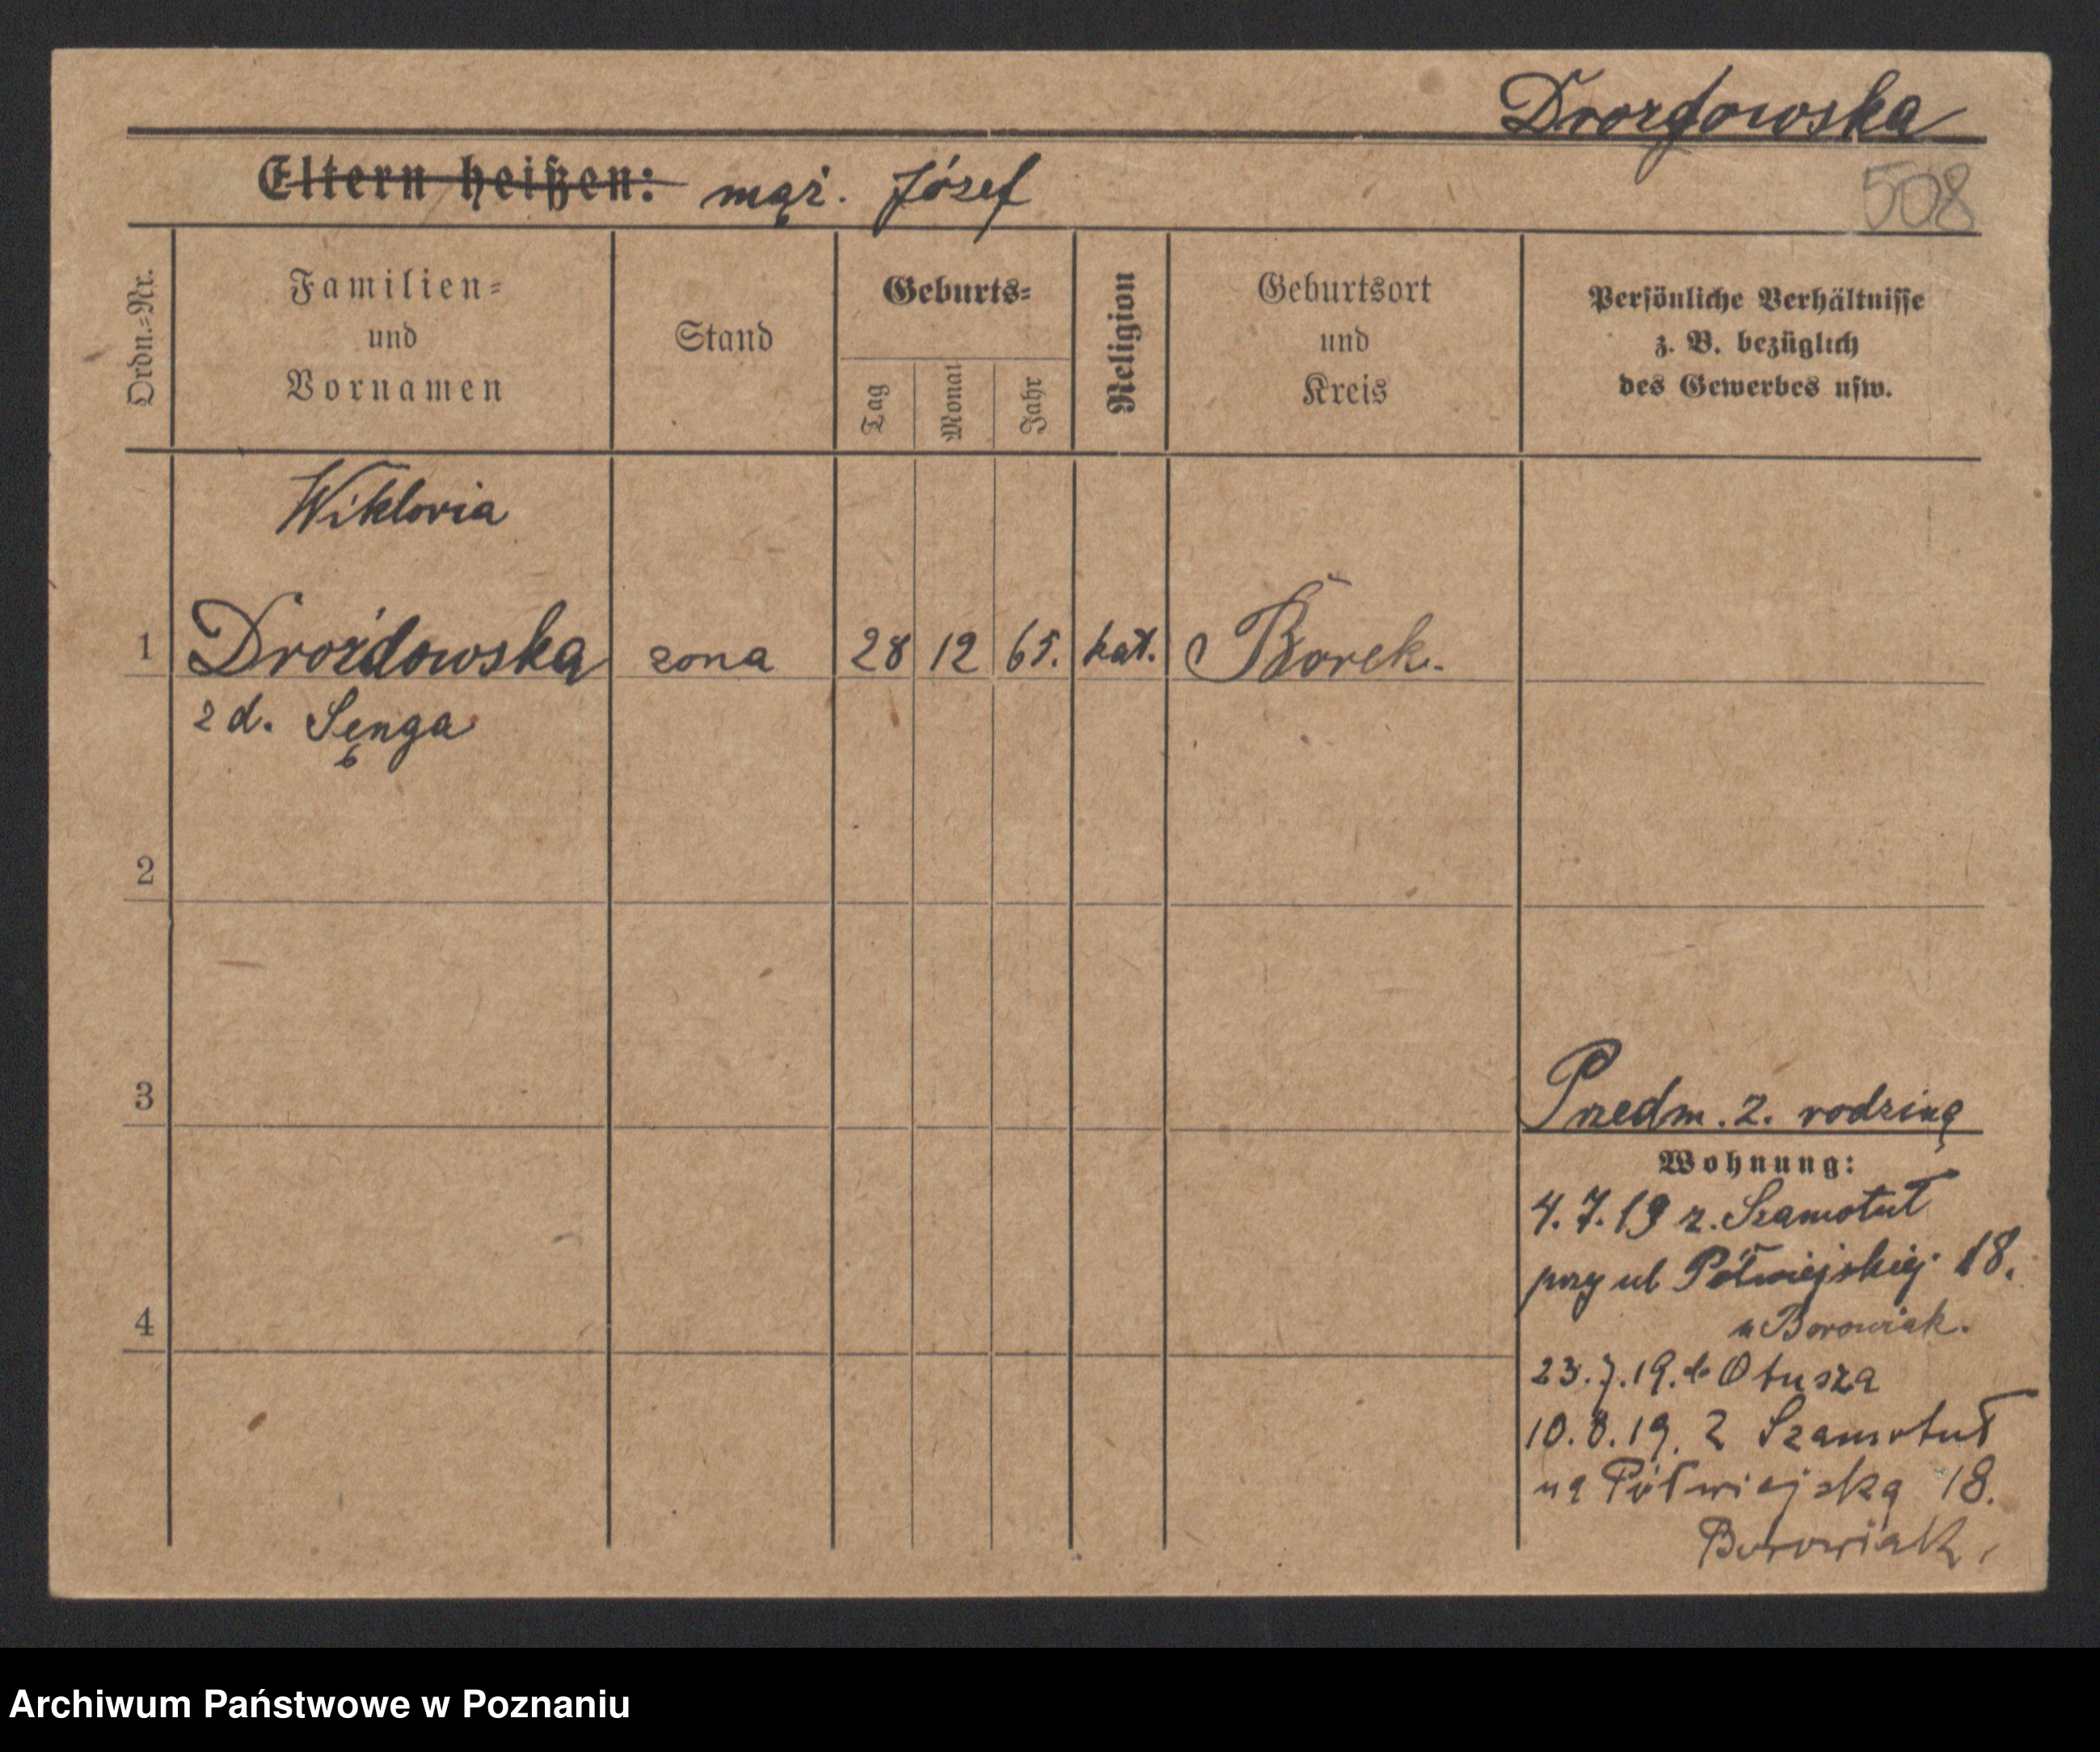 Drozdowska
Eltern heißen: mąż. Józef
508
Ordn.=Nr.
Familien=
und
Vornamen
Stand
Geburts=
Tag
Monat
Jahr
Religion
Geburtsort
und
Kreis
Persönliche Verhältnisse
z. B. bezüglich
des Gewerbes usw.
Wiktoria
1 Droźdowska zona 28 12 65. kat. Borek.
z d. Senga
2
3
Przedm. z. rodziną
Wohnung:
4. 7. 19 z. Szamotuł
przy ul Półwiejskiej 18.
u Borowiak.
4
23. 7. 19. do Otusza
10. 8. 19. z Szamotuł
na Półwiejską 18.
Borowiak.
Archiwum Państwowe w Poznaniu